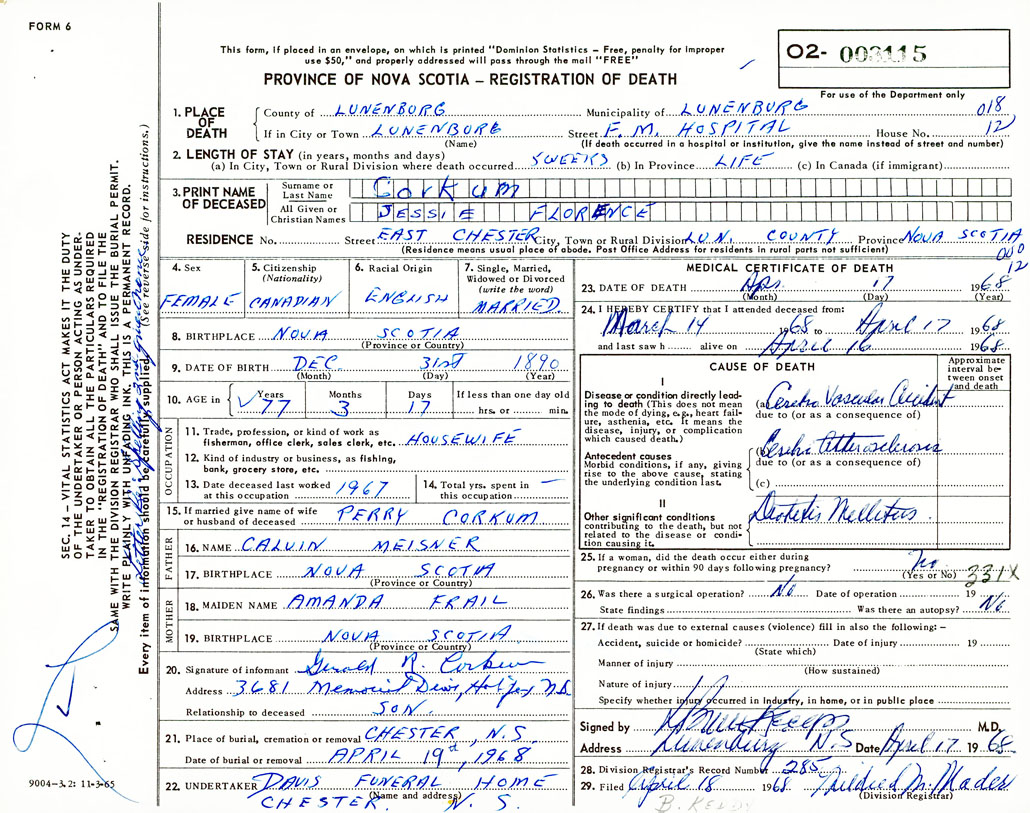 FORM 6
This form, if placed in an envelope, on which is printed "Dominion Statistics – Free, penalty for improper
use $50," and properly addressed will pass through the mail "FREE"
PROVINCE OF NOVA SCOTIA – REGISTRATION OF DEATH
O2- 003115
For use of the Department only
018
12
1. PLACE OF DEATH
County of LUNENBURG Municipality of LUNENBURG
If in City or Town LUNENBURG Street F. M. HOSPITAL House No.
(Name) (If death occurred in a hospital or institution, give the name instead of street and number)
2. LENGTH OF STAY (in years, months and days)
(a) In City, Town or Rural Division where death occurred 5 WEEKS (b) In Province LIFE (c) In Canada (if immigrant)
3. PRINT NAME OF DECEASED
Surname or Last Name Corkum
All Given or Christian Names JESSIE FLORENCE
RESIDENCE No. Street EAST CHESTER City, Town or Rural Division LUN. COUNTY Province NOVA SCOTIA
(Residence means usual place of abode. Post Office Address for residents in rural parts not sufficient)
000
12
4. Sex FEMALE
5. Citizenship (Nationality) CANADIAN
6. Racial Origin ENGLISH
7. Single, Married, Widowed or Divorced (write the word) MARRIED.
8. BIRTHPLACE NOVA SCOTIA
(Province or Country)
9. DATE OF BIRTH DEC. 31st 1890
(Month) (Day) (Year)
10. AGE in Years Months Days If less than one day old
77 3 17 hrs. or min.
OCCUPATION
11. Trade, profession, or kind of work as
fisherman, office clerk, sales clerk, etc. HOUSEWIFE
12. Kind of industry or business, as fishing,
bank, grocery store, etc.
13. Date deceased last worked at this occupation 1967
14. Total yrs. spent in this occupation —
15. If married give name of wife
or husband of deceased PERRY CORKUM
FATHER
16. NAME CALVIN MEISNER
17. BIRTHPLACE NOVA SCOTIA
(Province or Country)
MOTHER
18. MAIDEN NAME AMANDA FRAIL
19. BIRTHPLACE NOVA SCOTIA
(Province or Country)
20. Signature of informant Gerald R. Corkum
Address 3681 Memorial Drive, Halifax N.S.
Relationship to deceased SON.
21. Place of burial, cremation or removal CHESTER, N.S.
Date of burial or removal APRIL 19th, 1968
22. UNDERTAKER DAVIS FUNERAL HOME
(Name and address)
CHESTER. N. S.
MEDICAL CERTIFICATE OF DEATH
23. DATE OF DEATH Apr. 17 1968
(Month) (Day) (Year)
24. I HEREBY CERTIFY that I attended deceased from:
March 14 1968 to April 17 1968
and last saw h alive on April 16 1968
CAUSE OF DEATH
Approximate interval between onset and death
I
Disease or condition directly leading to death (This does not mean
the mode of dying, e.g., heart failure, asthenia, etc. It means the
disease, injury, or complication
which caused death.)
(a) Cerebro Vascular Accident
due to (or as a consequence of)
Antecedent causes
Morbid conditions, if any, giving
rise to the above cause, stating
the underlying condition last.
Cerebro Atherosclerosis
due to (or as a consequence of)
(c)
II
Other significant conditions
contributing to the death, but not
related to the disease or condition causing it.
Diabetis Mellitus
25. If a woman, did the death occur either during
pregnancy or within 90 days following pregnancy? No
(Yes or No)
331X
26. Was there a surgical operation? No Date of operation 19
State findings Was there an autopsy? No
27. If death was due to external causes (violence) fill in also the following: –
Accident, suicide or homicide? Date of injury 19
(State which)
Manner of injury
(How sustained)
Nature of injury
Specify whether injury occurred in Industry, in home, or in public place
Signed by M.D.
Address Lunenburg N.S Date April 17 1968
28. Division Registrar's Record Number 285
29. Filed April 18 1968 Mildred M. Mader
(Division Registrar)
B.
SEC. 14 – VITAL STATISTICS ACT MAKES IT THE DUTY
OF THE UNDERTAKER OR PERSON ACTING AS UNDER-
TAKER TO OBTAIN ALL THE PARTICULARS REQUIRED
IN THE "REGISTRATION OF DEATH" AND TO FILE THE
SAME WITH THE DIVISION REGISTRAR WHO SHALL ISSUE THE BURIAL PERMIT.
WRITE PLAINLY WITH UNFADING INK. THIS IS A PERMANENT RECORD.
Every item of information should be carefully supplied. (See reverse side for instructions.)
9004-3.2: 11-3-65